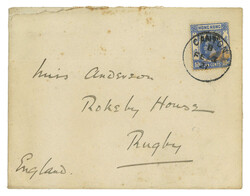 HONG KONG
CANTON
Miss Anderson
Rokeby House
Rugby
England.